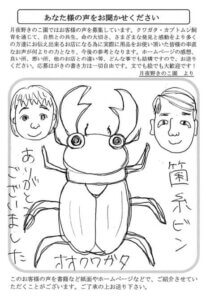 あなた様の声をお聞かせください
月夜野きのこ園ではお客様の声を募集しています。クワガタ・カブトムシ飼育
を通じて、自然との共生、命の大切さ、さまざまな発見と感動をより多く
の方達にお伝え出来るお店になる為に実際に用品をお使い頂いた皆様の率直
なお声が何よりの力となり、今後の参考となります。ホームページの感想、
良い所、悪い所、他のお店との違い等、どんな事でも結構ですので、お送り
ください。応募はがきの書き方は一切自由です。文でも絵でも大歓迎です！
月夜野きのこ園 より
菌糸ビン
ありがとう
ございました
オオクワガタ
このお客様の声を書籍など紙面やホームページなどで、ご紹介させてい
ただくことがございます。ご了承の上お送り下さい。